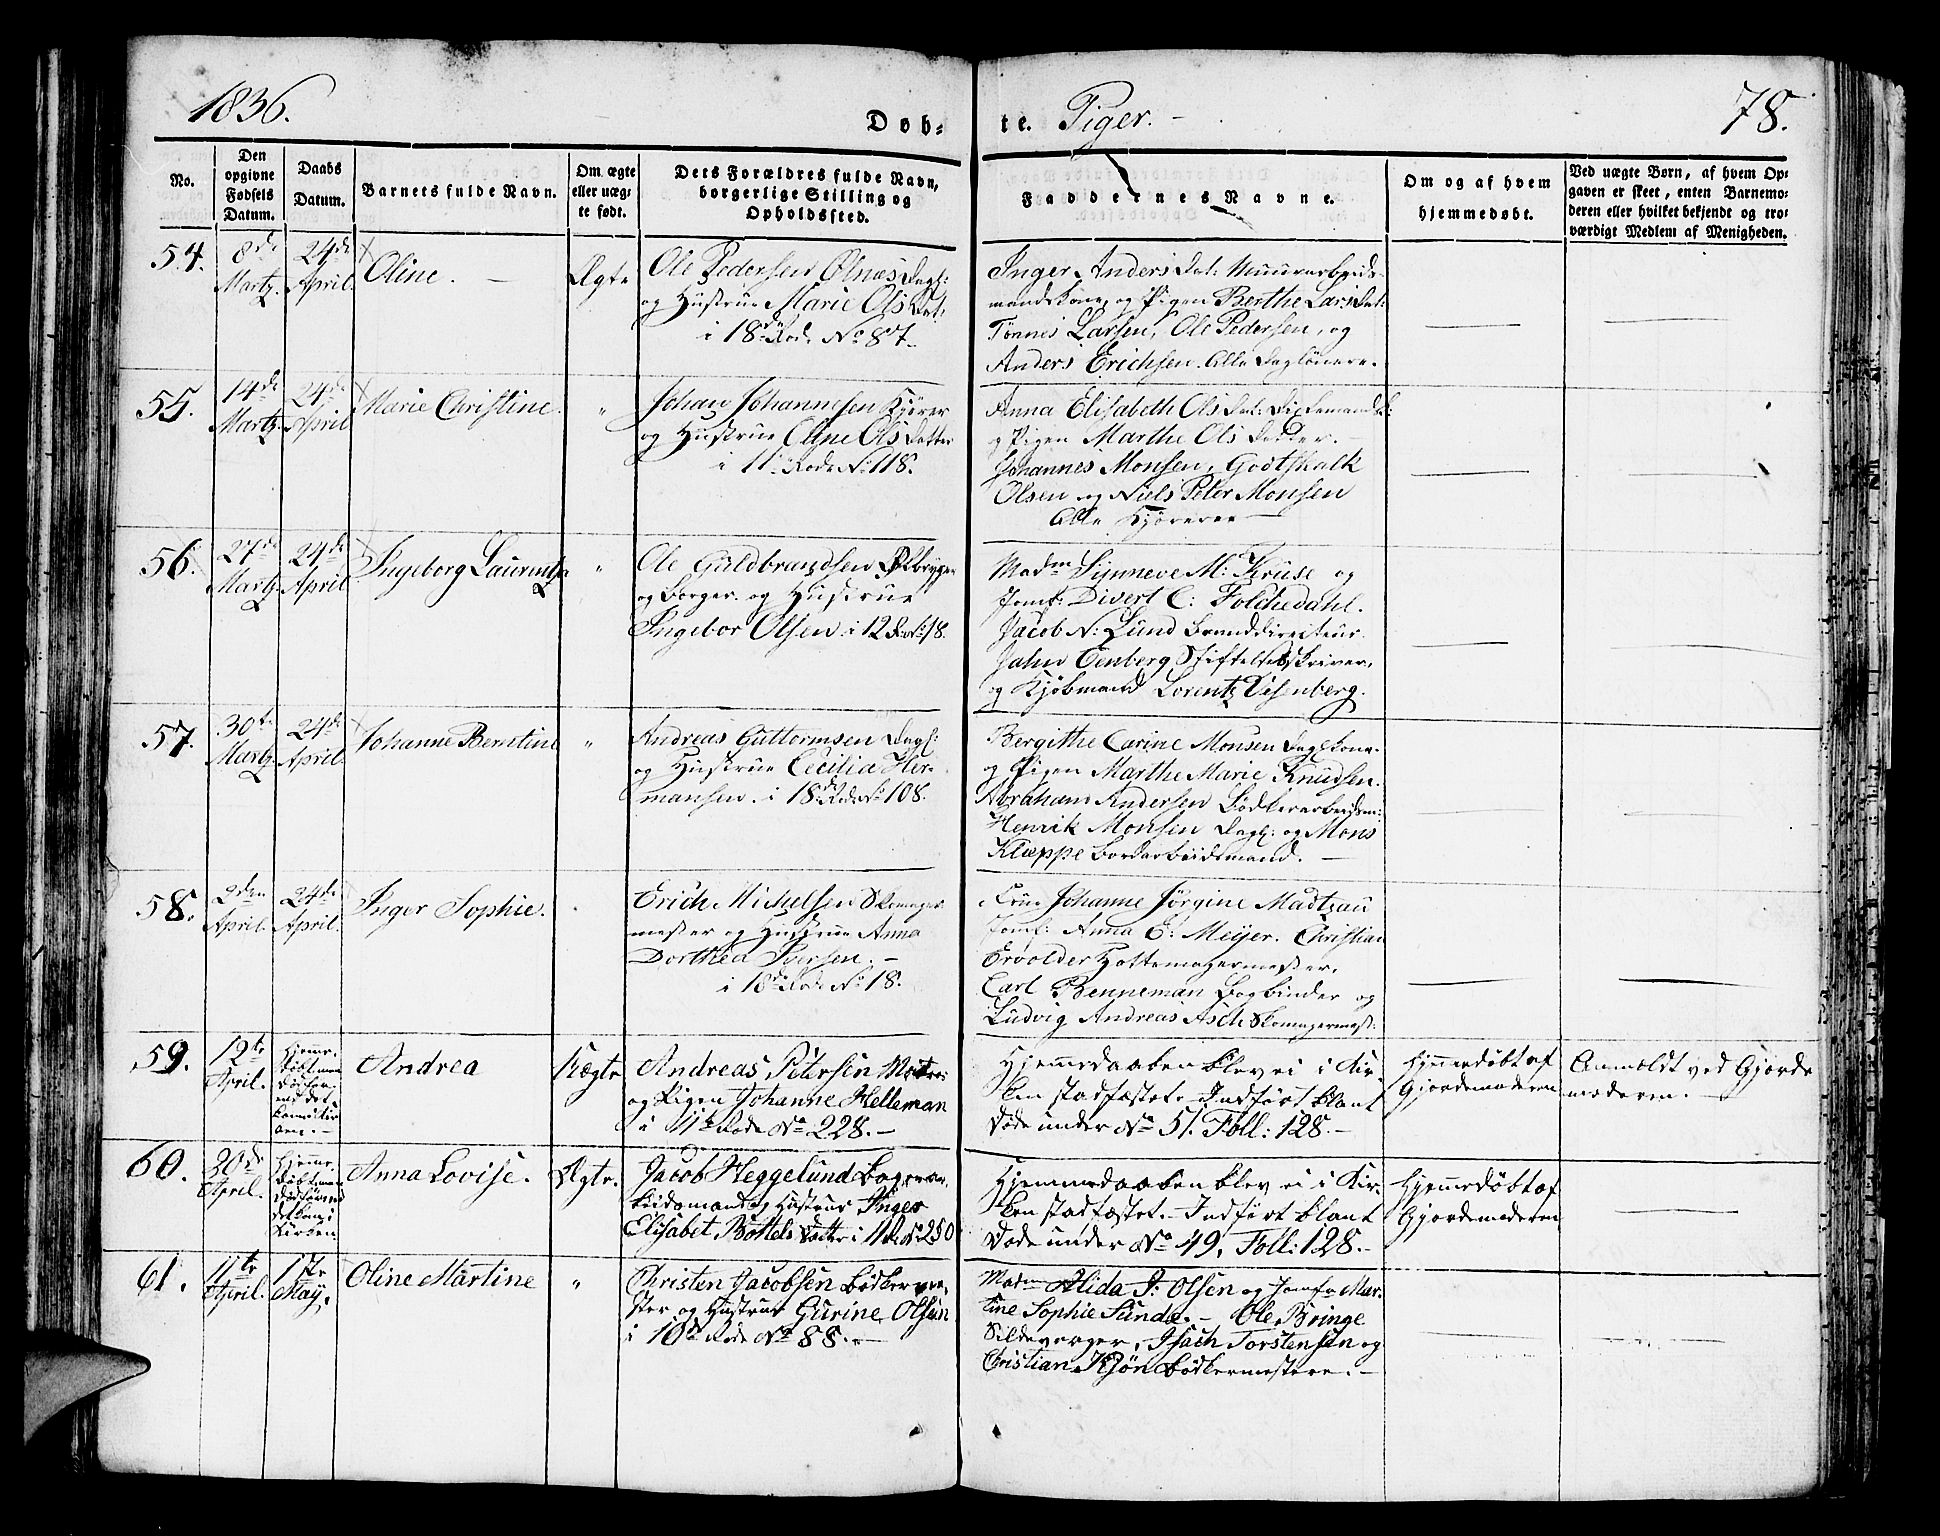 1836.
Döb-
te. Piger. -
78.
No.
Den opgivne Fødsels Datum.
Daabs Datum.
Barnets fulde Navn.
Om ægte eller uægte født.
Dets Forældres fulde Navn, borgerlige Stilling og Opholdssted.
Faddernes Navne.
Om og af hvem hjemmedøbt.
Ved uægte Børn, af hvem Opgaven er skeet, enten Barnemoderen eller hvilket bekjendt og troværdigt Medlem af Menigheden.
54.
8de Martz.
24de April.
Oline. -
Ægte
Ole Pedersen Ølnæs Dagl:
og Hustrue Marie Ols Dat.
i 18de Rode No 87.
Inger Anders Dat: Muurarbeids-
mandskone, og Pigen Berthe Lars Dat:
Tønnes Larsen, Ole Pedersen, og
Anders Erichsen. Alle Daglönere.
55.
14de Martz.
24de April
Marie Christine.
"
Johan Johannesen Kjörer
og Hustrue Oline Ols Datter
i 11 Rode No 118.
Anna Elisabeth Ols Dat:
og Pigen Marthe Ols Datter. -
Johannes Monsen, Godtskalk
Olsen og Niels Peter Monsen
Alle Kjörere
56.
27de Martz.
24de April
Ingeborg Laurentza
"
Ole Guldbrandsen Ølbrygger
og Borger. og Hustrue
Ingebor Olsen i 12 Rode No 18.
Madm Synneve M: Kruse og
Jomf: Divert C: Folchedahl.
Jacob N: Lund Branddirecteur.
Jahn Eenberg Stiftelsesskriver,
og Kjöbmand Lorentz Disenberg.
57.
30te Martz.
24de April.
Johanne Berntine
"
Andreas Guttormsen Dagl:
og Hustrue Cecilia Her-
mansen. i 18de Rode No 108.
Bergithe Carine Monsen Dagl. kone.
og Pigen Marthe Marie Knudsen.
Abraham Andersen Bödkerarbeidsm:
Henrik Monsen Dagl: og Mons
Klæppe Bordarbeidsmand. -
58.
2den April.
24de April.
Inger Sophie.
Erich Michelsen Skomager
mester og Hustrue Anna
Dorthea Iversen. -
i 18de Rode No 18.
Frue Johanne Jörgine Madtzau
Jomf: Anna E: Meijer. Christian
Ervolder Hattemagermester.
Carl Benneman Bogbinder og
Ludvig Andreas Asch Skomagermest:
59.
12te April.
Hjemme-
døbt men
döde för-
end det
kom i Kir-
ken. -
Andrea
Uægte
Andreas Petersen Matros
og Pigen Johanne Helleman
i 11te Rode No 228. -
Hjemmedaaben blev ei i Kir-
ken stadfæstet. Indført blant
Döde under No 51. Foll: 128. -
Hjemmedøbt af
Gjordemoderen
Anmeldt ved Gjorde
moderen. -
60.
20de April.
Hjemme-
døbt men
döde förend
det kom i
Kirken
Anna Lovise.
Ægte.
Jacob Heggelund Bager ar-
beidsmand og Hustrue Inger
Elisabet Bottels Datter i 11 Rode No 250
Hjemmedaaben blev ei i Kir-
ken stadfæstet. - Indført blant
Döde under No 49, Foll: 128. -
Hjemmedøbt af
Gjordemoderen
61.
11te April.
1ste May.
Oline Martine
"
Christen Jacobsen Bödkerme-
ster og Hustrue Gurine Olsen
i 10de Rode No 88. -
Madm Alida J: Olsen og Jomfr Mar-
tine Sophie Sunde. - Ole Bringe
Sildevrager, Isach Torstensen og
Christian Kjön Bödkermestere. -